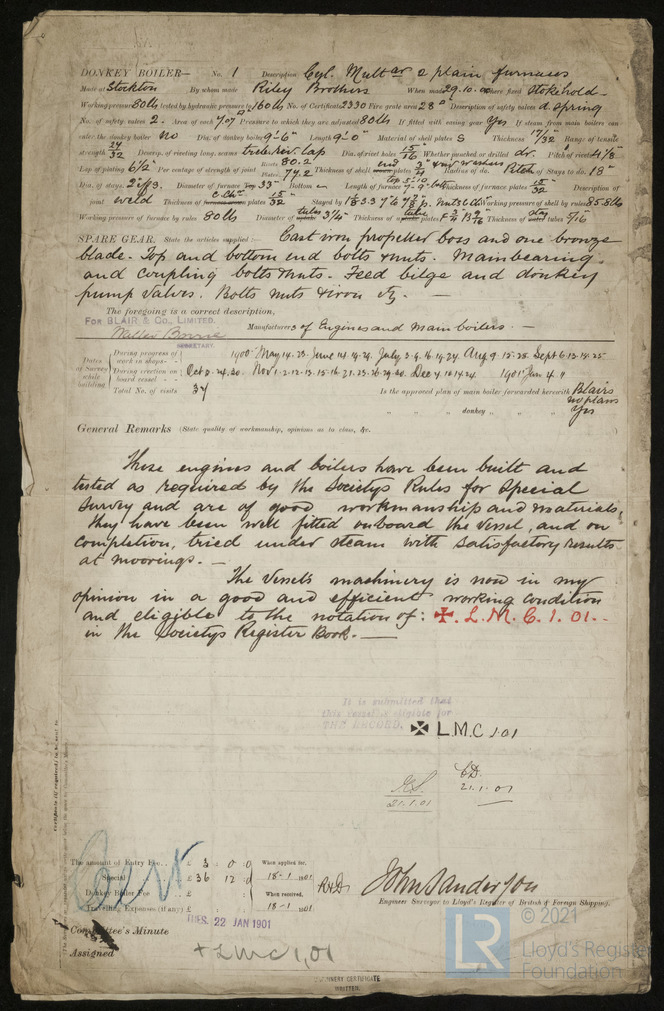 DONKEY BOILER— No. 1 Description Cyl. Multar 2 plain furnaces
Made at Stockton By whom made Riley Brothers When made 29.10.00 Where fixed Stokehold
Working pressure 80lbs tested by hydraulic pressure to 160lbs No. of Certificate 2330 Fire grate area 28□" Description of safety valves d. spring
No. of safety valves 2. Area of each 7.07□" Pressure to which they are adjusted 80lbs If fitted with easing gear Yes If steam from main boilers can
enter the donkey boiler no Dia. of donkey boiler 9'-6" Length 9'-0" Material of shell plates S Thickness 17/32 Range of tensile
strength 27/32 Descrip. of riveting long. seams treble riv. lap Dia. of rivet holes 15/16 Whether punched or drilled dr. Pitch of rivets 4 1/8
Lap of plating 6 1/2" Per centage of strength of joint Rivets 80.2 Plates 77.2 Thickness of shell end plates 3/4 Radius of do. Pitch of Stays to do. 18"
Dia. of stays. Diameter of furnace Top 33" Bottom Length of furnace top 5'-10 Thickness of furnace plates 15/32 Description of
joint weld Thickness of plates 15/32 Stayed by Working pressure of shell by rules 85.8lbs
Working pressure of furnace by rules 80lbs Diameter of tubes 3 1/4" Thickness of tube plates F 3/4 B 9/16 Thickness of stay tubes 5/16
SPARE GEAR. State the articles supplied:— Cast iron propeller boss and one bronze
blade. Top and bottom end bolts & nuts. Main bearing
and coupling bolts & nuts. Feed bilge and donkey
pump valves. Bolts nuts & iron &c. —
The foregoing is a correct description,
FOR BLAIR & CO., LIMITED.
SECRETARY.
Manufacturers of Engines and Main boilers. —
Dates of Survey while building
During progress of work in shops- - 1900 May 14. 23. June 14. 19. 29. July 3. 9. 16. 19. 24 Aug 9. 15. 25. Sept 6. 13. 18. 25
During erection on board vessel - - Oct 24. 30. Nov 1. 2. 12. 13. 15. 16. 21. 23. 26. 29. 30. Dec 4. 10. 14. 24. 1901 Jan 4. 11
Total No. of visits 34
Is the approved plan of main boiler forwarded herewith Blairs no plans
" " " donkey " " " Yes
General Remarks (State quality of workmanship, opinions as to class, &c.
These engines and boilers have been built and
tested as required by the Societys Rules for Special
Survey and are of good workmanship and materials,
they have been well fitted onboard the vessel, and on
completion, tried under steam with satisfactory results
at moorings. —
The Vessels machinery is now in my
opinion in a good and efficient working condition
and eligible to the notation of: ✠. L. M. C. 1. 01. -
in the Societys Register Book. —
It is submitted that
this vessel is eligible for
THE RECORD. ✠ L.M.C 1.01
21.1.01
21.1.01
Certificate (if required) to be sent to
Cert
The amount of Entry Fee. . £ 3 : 0 : 0 When applied for,
Special £ 36 : 12 : 0 18-1 1901
Donkey Boiler Fee £ : : When received,
Travelling Expenses (if any) £ : : 18-1 1901
John Sanderson
Engineer Surveyor to Lloyd's Register of British & Foreign Shipping.
TUES. 22 JAN 1901
Committee's Minute
Assigned + LMC 1,01
MACHINERY CERTIFICATE
WRITTEN.
LR
© 2021
Lloyd's Register
Foundation